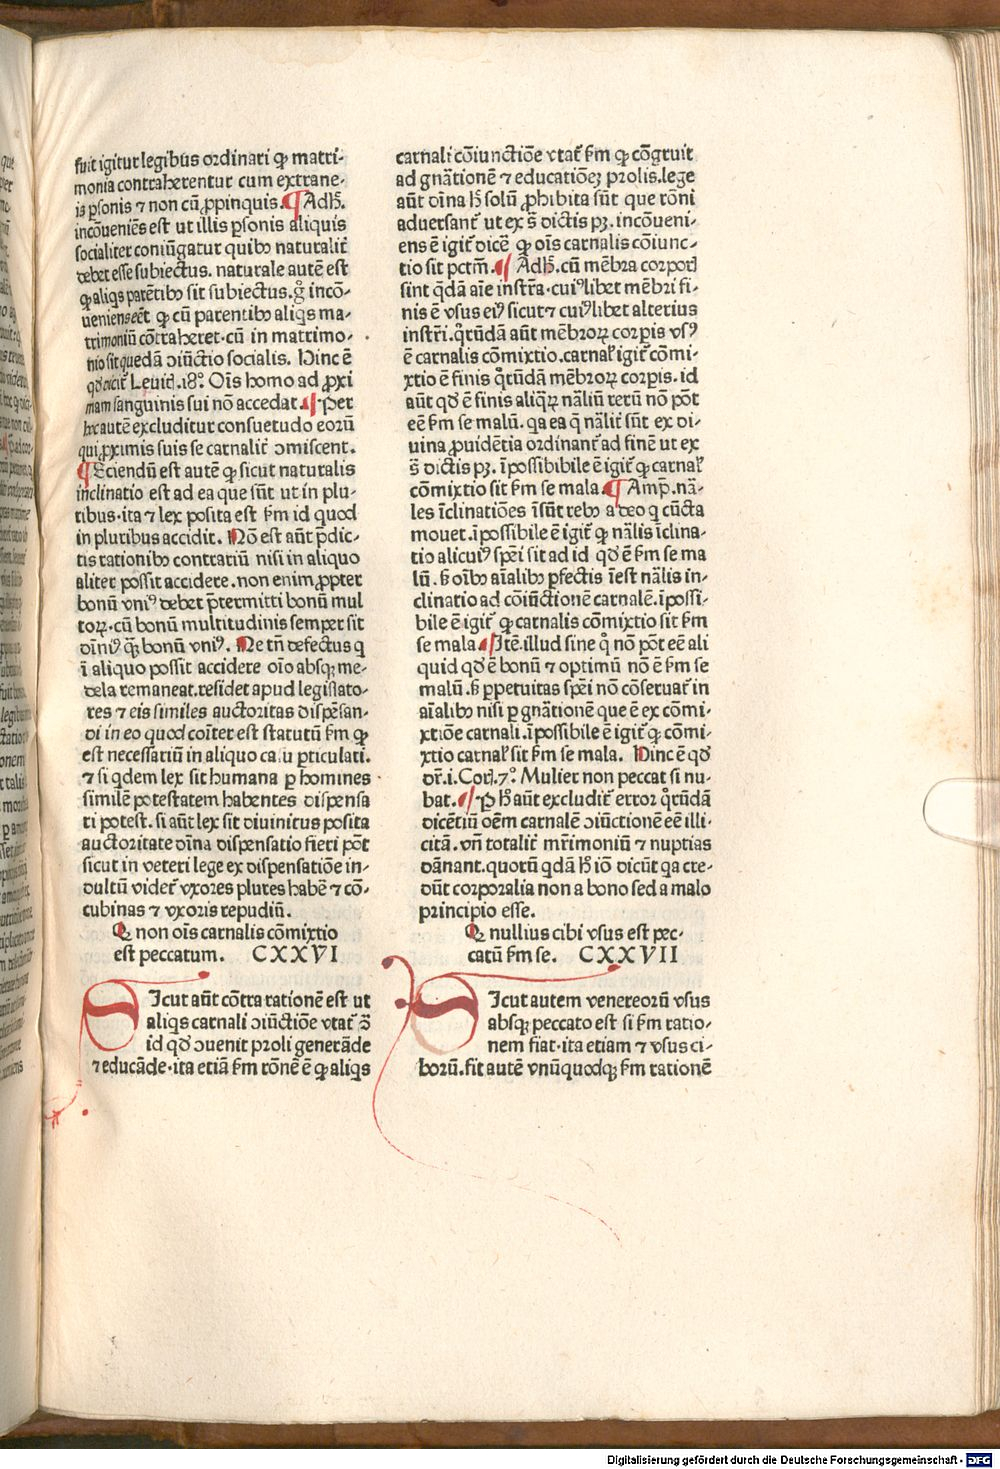 fuit igitur legibus ordinari ꝙ matri-
monia contraherentur cum extrane-
is ꝑsonis ⁊ non cū ꝓpinquis. ¶ Adh̄.
incōueniēs est ut illis ꝑsonis aliquis
socialiter coniūgatur quibꝰ naturalit̄
debet esse subiectus. naturale autē est
ꝙ aliqs parētibꝰ sit subiectus. gͦ incō-
ueniens eēt ꝙ cū parentibꝰ aliqs ma-
trimoniū cōtraheret. cū in matrimo-
nio sit quedā ↄiūctio socialis. Hinc ē
qd̄ dicit̄ Leuit̄. 18°. Oīs homo ad ꝓxi
mam sanguinis sui nō accedat. ¶ Per
hoc autē excluditur consuetudo eorū
qui ꝓximis suis se carnalit̄ ↄmiscent.
¶ Sciendū est autē ꝙ sicut naturalis
inclinatio est ad ea que sūt ut in plu-
ribus. ita ⁊ lex posita est ẜm id quod
in pluribus accidit. Nō est aūt p̄dic-
tis rationibꝰ contrariū nisi in aliquo
aliter possit accidere. non enim ꝓpter
bonū vniꝰ debet p̄termitti bonū mul
toꝝ. cū bonū multitudinis semper sit
diīniꝰ q̄ꝫ bonū vniꝰ. Ne tn̄ defectus q
ī aliquo possit accidere oīo absqꝫ me-
dela remaneat. residet apud legislato-
res ⁊ eis similes auctoritas dispēsan-
di in eo quod cōiter est statutū ẜm ꝙ
est necessariū in aliquo casu ꝑticulari.
⁊ si qdem lex sit humana ꝑ homines
similē potestatem habentes dispensa
ri potest. si aūt lex sit diuinitus posita
auctoritate diīna dispensatio fieri pōt
sicut in veteri lege ex dispensatiōe in-
dultū videt̄ vxores plures habē ⁊ cō-
cubinas ⁊ vxoris repudiū.
Q non oīs carnalis cōmixtio
est peccatum. CXXVI
SIcut aūt cōtra rationē est ut
aliqs carnali ↄiūctiōe vtat̄ ↄ̄
id qd̄ ↄuenit proli generāde
⁊ educāde. ita etiā ẜm rōnē ē ꝙ aliqs
carnali cōiunctiōe vtat̄ ẜm ꝙ cōgruit
ad gnātionē ⁊ educatiōeꝫ prolis. lege
aūt diīna h̄ solū ꝓhibita sūt que rōni
aduersant̄ ut ex s̄ dictis pꝫ. incōueni-
ens ē igit̄ dicē ꝙ oīs carnalis cōiunc-
tio sit pctm̄. ¶ Adh̄. cū mēbra corporꝭ
sint q̄dā aīe instr̄a. cuiꝰlibet mēbri fi-
nis ē vsus eiꝰ sicut ⁊ cuiꝰlibet alterius
instr̄i. qͦrūdā aūt mēbroꝝ corꝑis vsꝰ
ē carnalis cōmixtio. carnal̄ igit̄ cōmi-
xtio ē finis qͦrūdā mēbroꝝ corꝑis. id
aūt qd̄ ē finis aliqͦꝝ nāliū rerū nō pōt
eē ẜm se malū. qa ea q̄ nālit̄ sūt ex di-
uina ꝓuidētia ordinant̄ ad finē ut ex
s̄ dictis pꝫ. īpossibibile ē igit̄ ꝙ carnal̄
cōmixtio sit ẜm se mala. ¶ Amp̄. nā-
les īclinatiōes īsūt rebꝰ a deo q cūcta
mouet. īpossibile ē igit̄ ꝙ nālis īclina-
tio alicuiꝰ sp̄ei sit ad id qd̄ ē ẜm se ma
lū. ß oībꝰ aīalibꝰ ꝑfectis īest nālis in-
clinatio ad cōiūctionē carnalē. īpossi-
bile ē igit̄ ꝙ carnalis cōmixtio sit ẜm
se mala. ¶ Itē. illud sine qͦ nō pōt eē ali
quid qd̄ ē bonū ⁊ optimū nō ē ẜm se
malū. ß ꝑpetuitas sp̄ei nō cōseruat̄ in
aīalibꝰ nisi ꝑ gnātionē que ē ex cōmi-
xtiōe carnali. īpossibile ē igit̄ ꝙ cōmi-
xtio carnal̄ sit ẜm se mala. Hinc ē qd̄
dr̄. i. Corꝭ. 7°. Mulier non peccat si nu-
bat. ¶ P h̄ aūt excludit̄ error qͦrūdā
dicētiū oēm carnalē ↄiūctionē eē illi-
citā. vn̄ totalit̄ mr̄imoniū ⁊ nuptias
dānant. quorū q̄dā h̄ iō dicūt qa cre-
dūt corporalia non a bono sed a malo
principio esse.
Q nullius cibi vsus est pec-
catū ẜm se. CXXVII
SIcut autem venereorū vsus
absqꝫ peccato est si ẜm ratio-
nem fiat. ita etiam ⁊ vsus ci-
borū. fit autē vnūquodqꝫ ẜm rationē
Digitalisierung gefördert durch die Deutsche Forschungsgemeinschaft - DFG